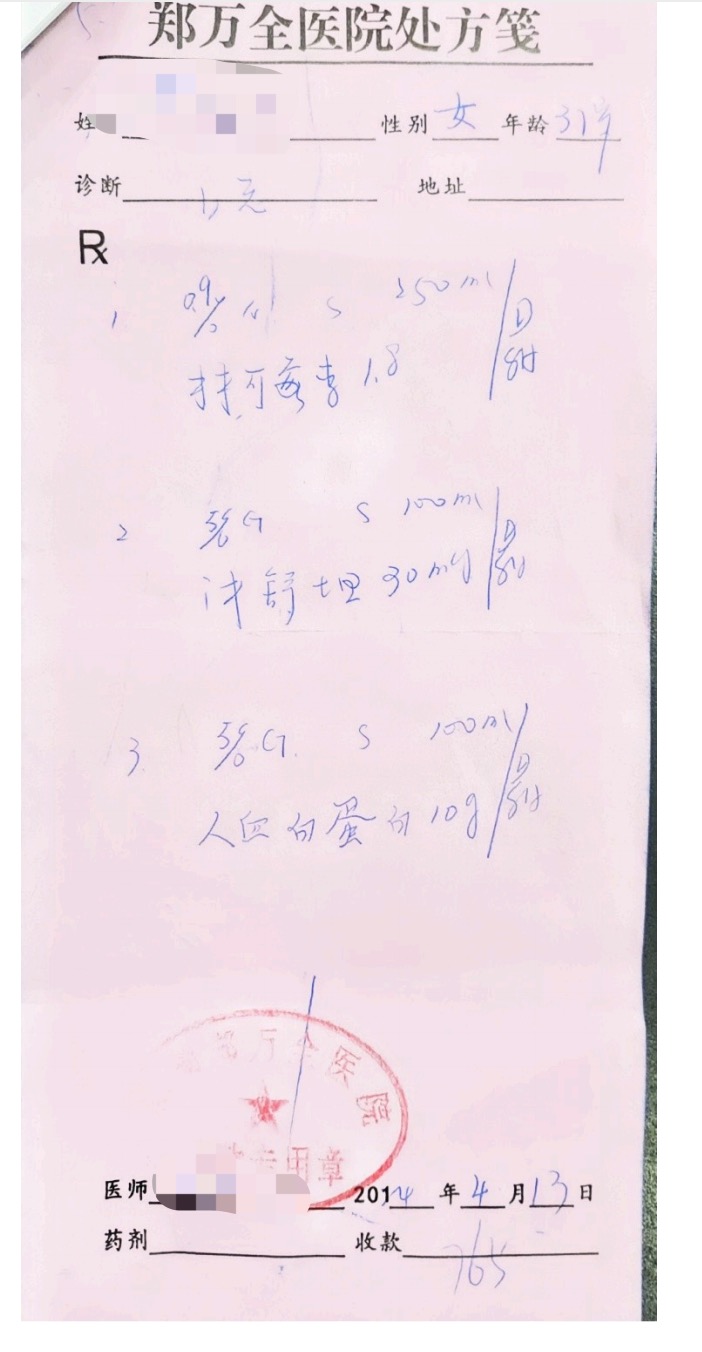 郑万全医院处方笺
姓 性别 女 年龄 31岁
诊断 地址
Rx
1 0.9% S 250ml / 日
1.8
2 5%G S 100ml / 日
沐舒坦 30mg
3 5%G S 100ml / 日
人血白蛋白 10g
万全医院
专用章
医师 2014 年 4 月 13 日
药剂 收款 765